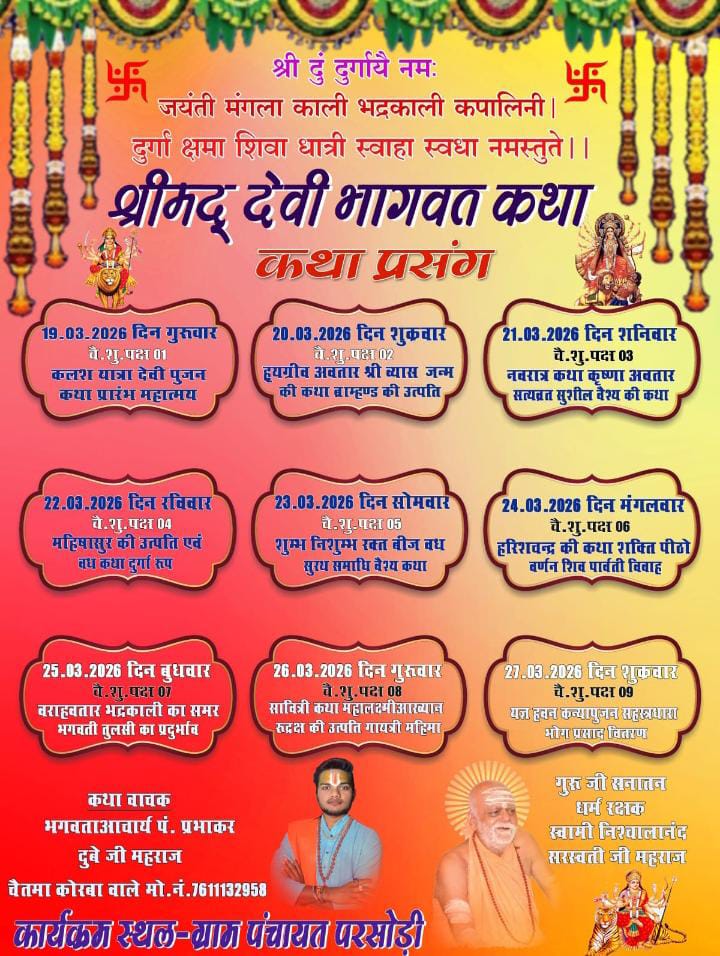 श्री दुं दुर्गायै नमः
जयंती मंगला काली भद्रकाली कपालिनी।
दुर्गा क्षमा शिवा धात्री स्वाहा स्वधा नमस्तुते।।
श्रीमद् देवी भागवत कथा
कथा प्रसंग
19.03.2026 दिन गुरूवार
चै.शु.पक्ष 01
कलश यात्रा देवी पुजन
कथा प्रारंभ महात्मय
20.03.2026 दिन शुक्रवार
चै.शु.पक्ष 02
हृयग्रीव अवतार श्री व्यास जन्म
की कथा ब्राम्हण्ड की उत्पति
21.03.2026 दिन शनिवार
चै.शु.पक्ष 03
नवरात्र कथा कृष्णा अवतार
सत्यव्रत सुशील वैश्य की कथा
22.03.2026 दिन रविवार
चै.शु.पक्ष 04
महिषासुर की उत्पति एवं
वध कथा दुर्गा रूप
23.03.2026 दिन सोमवार
चै.शु.पक्ष 05
शुम्भ निशुम्भ रक्त बीज वध
सुरथ समाधि वैश्य कथा
24.03.2026 दिन मंगलवार
चै.शु.पक्ष 06
हरिशचन्द्र की कथा शक्ति पीठो
वर्णन शिव पार्वती विवाह
25.03.2026 दिन बुधवार
चै.शु.पक्ष 07
वराहवतार भद्रकाली का समर
भगवती तुलसी का प्रदुर्भाव
26.03.2026 दिन गुरूवार
चै.शु.पक्ष 08
सावित्री कथा महालक्ष्मीआख्यान
रूद्रक्ष की उत्पति गायत्री महिमा
27.03.2026 दिन शुक्रवार
चै.शु.पक्ष 09
यज्ञ हवन कन्यापुजन सहस्त्रधारा
भोग प्रसाद वितरण
कथा वाचक
भगवताआचार्य पं. प्रभाकर
दुबे जी महराज
चैतमा कोरबा वाले मो.नं.7611132958
गुरू जी सनातन
धर्म रक्षक
स्वामी निश्चालानंद
सरस्वती जी महराज
कार्यक्रम स्थल-ग्राम पंचायत परसोड़ी